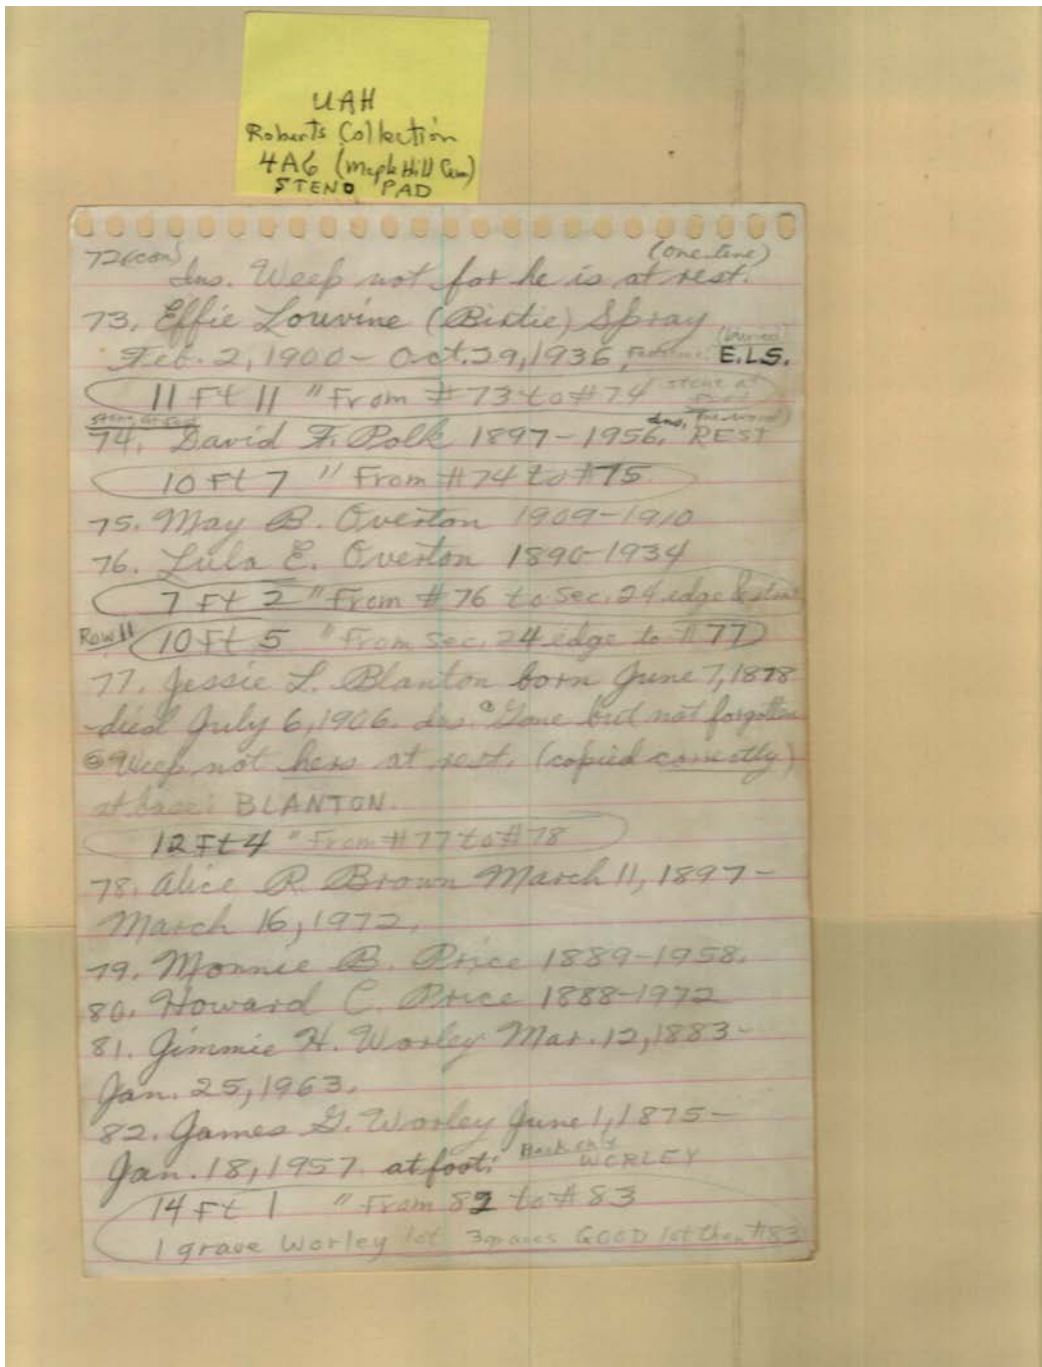 UAH
Roberts Collection
4A6 (Maple Hill Cem)
STENO PAD
72(con) (one line)
Ins. Weep not for he is at rest.
73. Effie Louvine (Birtie) Spray
Feb. 2, 1900 - Oct. 29, 1936, E.L.S.
11 Ft 11 " From #73 to #74 stone at
74. David F. Polk 1897-1956. Ins. (one word) REST
10 Ft 7 " From #74 to #75
75. May B. Overton 1909-1910
76. Lula E. Overton 1890-1934
7 Ft 2 " From #76 to Sec. 24 edge &
Row 11 10 Ft 5 " From Sec. 24 edge to #77
77. Jessie L. Blanton born June 7, 1878
died July 6, 1906. Ins. ① Gone but not forgotten
② Weep not hers at rest. (copied correctly)
at base: BLANTON.
12 Ft 4 " From #77 to #78
78. Alice R Brown March 11, 1897-
March 16, 1972.
79. Monnie B. Price 1889-1958.
80. Howard C. Price 1888-1972
81. Jimmie H. Worley Mar. 12, 1883-
Jan. 25, 1963.
82. James G. Worley June 1, 1875-
Jan. 18, 1957. at foot: WORLEY
14 Ft 1 " From 82 to #83
1 grave Worley lot 3 graves GOOD lot then #83